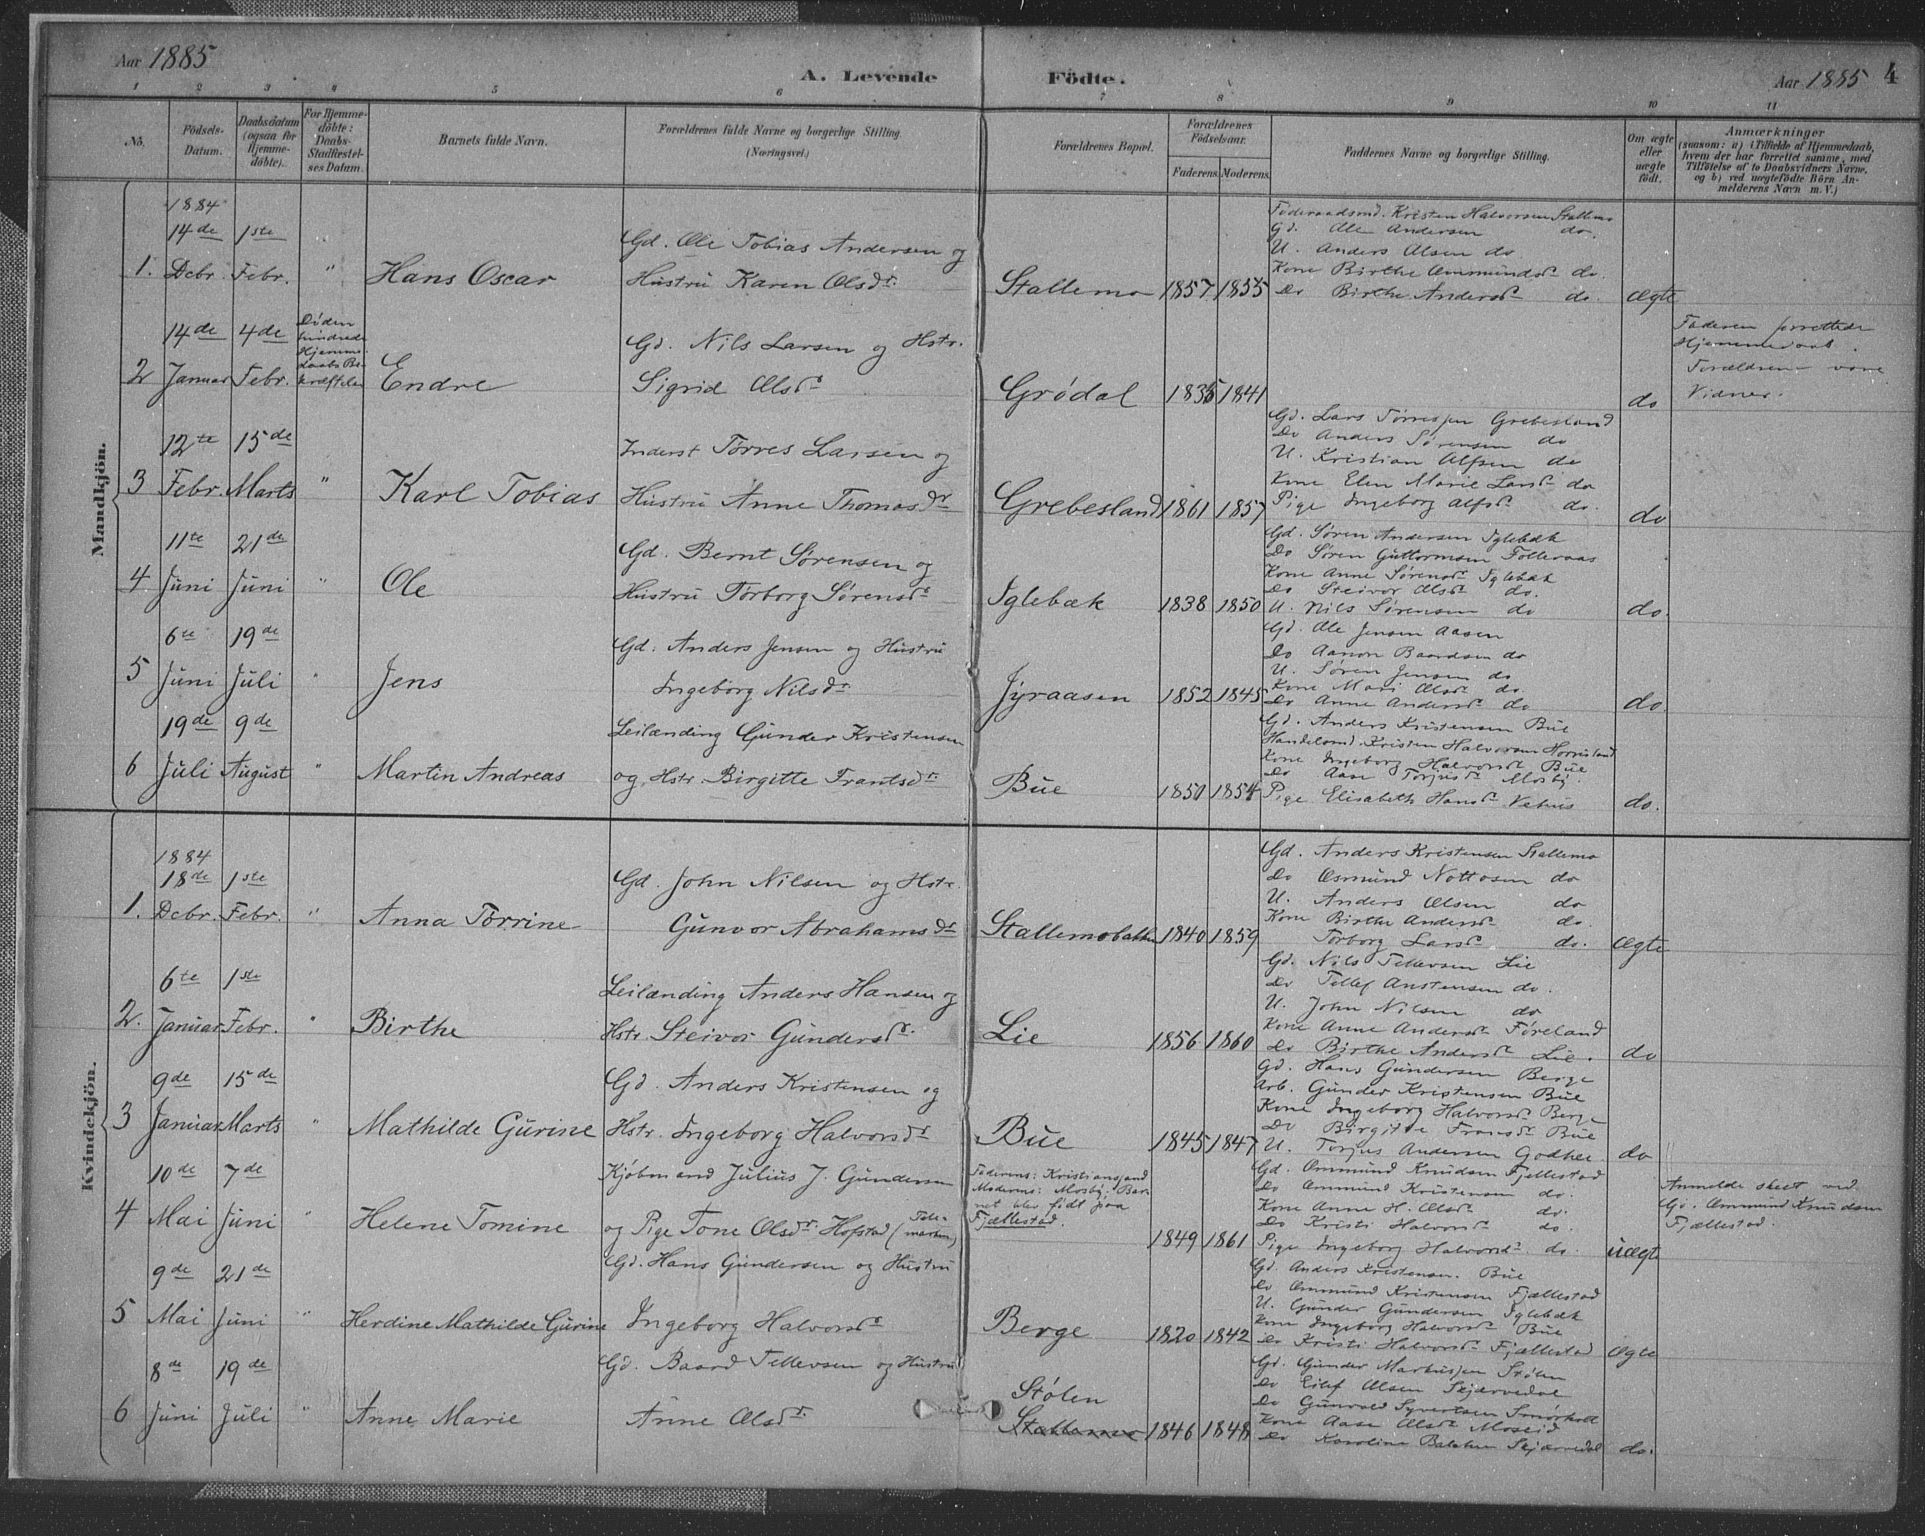 Aar 1885
A. Levende Födte.
Aar 1885 4
1 2 3 4 5 6 7 8 9 10 11
No.
Födsels-Datum.
Daabsdatum (ogsaa for Hjemmedöbte).
For Hjemmedöbte: Daabs-Stadfæstelses Datum.
Barnets fulde Navn.
Forældrenes fulde Navne og borgerlige Stilling. (Næringsvei.)
Forældrenes Bopæl.
Forældrenes Födselsaar.
Faderens. Moderens.
Faddernes Navne og borgerlige Stilling.
Om ægte eller uægte födt.
Anmærkninger (saasom: a) i Tilfælde af Hjemmedaab, hvem der har forrettet samme, med Tilföielse af to Daabsvidners Navne, og b) ved uægtefödte Börn Anmelderens Navn m. V.)
Mandkjön.
1884
14de 1ste
1. Debr. Febr. " Hans Oscar
Gd. Ole Tobias Andersen og
Hustru Karen Olsdr.
Stallemo 1857 1855
Föderaadsmd. Kristen Halvorsen Stallemo
Gd. Ole Andersen do.
U. Anders Olsen do
Kone Birthe Ommundsdr do.
Do Birthe Andersdr do.
ægte
14de 4de
Døden hindrede Hjemmedaabs Bekræftelse
2 Januar Febr. Endre
Gd. Nils Larsen og Hstr.
Sigrid Olsdr
Grødal 1835 1841
do
Faderen forrettede
Hjemmedaab.
Forældrene vare
Vidner.
12te 15de
3 Febr. Marts " Karl Tobias
Inderst Tørres Larsen og
Hustru Anne Thomasdr
Grebesland 1861 1857
Gd. Lars Tørresen Grebesland
Do Anders Sørensen do
U. Kristian Alfsen do
Kone Elen Marie Larsdr do
Pige Ingeborg Alfsdr do.
do
11te 21de
4 Juni Juni " Ole
Gd. Bernt Sørensen og
Hustru Torborg Sørensdr
Iglebæk 1838 1850
Gd. Søren Andersen Iglebæk
Do Søren Guttormsen Folleraas
Kone Anne Sørensdr Iglebæk
Do Steivor Olsdr do.
U. Nils Sørensen do
do.
6te 19de
5 Juni Juli " Jens
Gd. Anders Jensen og Hustru
Ingeborg Nilsdr
Jyraasen 1852 1845
Gd. Ole Jensen Aasen
Do Aanon Baardsen do
U. Søren Jensen do
Kone Mari Olsdr do.
Do Anne Andersdr do
do.
19de 9de
6 Juli August " Martin Andreas
Leilænding Gunder Kristensen
og Hstr. Birgitte Frantsdr
Bue 1850 1854
Gd. Anders Kristensen Bue
Handelsmd. Kristen Halvorsen
Kone Ingeborg Halvorsdr Bue
Do Aase Torjusdr Mosby.
Pige Elisabeth Hansdr Vehus
do.
Kvindekjön.
1884
18de 1ste
1. Debr. Febr. " Anna Torrine
Gd. John Nilsen og Hstr.
Gunvor Abrahamsdr
Stallemobakken 1840 1859
Gd. Anders Kristensen Stallemo
Do Osmund Nottosen do
U. Anders Olsen do
Kone Birthe Andersdr do.
Torborg Larsdr do.
ægte
6te 1ste
2. Januar Febr. " Birthe
Leilænding Anders Hansen og
Hstr. Steivor Gundersdr.
Lie 1856 1860
Gd. Nils Tellevsen Lie
Do Tellef Anstensen do.
U. John Nilsen do
Kone Anne Andersdr Føreland
Do Birthe Andersdr Lie.
do
9de 15de
3 Januar Marts " Mathilde Gurine
Gd. Anders Kristensen og
Hstr. Ingeborg Halvorsdr
Bue 1845 1847
Gd. Hans Gundersen Berge
Arb. Gunder Kristensen Bue
Kone Ingeborg Halvorsdr Berge
Do Birgitte Fransdr Bue
U. Torjus Andersen
do
10de 7de
4 Mai Juni Helene Tomine
Kjøbmand Julius J. Gundersen
og Pige Tone Olsdr. Hofstad (Telemarken)
Faderens: Kristianssand
Moderens: Mosby. Barnet blev født paa
Fjællestad.
1849 1861
Gd. Ommund Knudsen Fjellestad
Do Ommund Kristensen do.
Kone Anne H. Olsdr do.
Do Kristi Halvorsdr do.
Pige Ingeborg Halvorsdr. do.
uægte
Anmelde skeet ved
Gd. Ommund Knudsen
Fjællestad.
9de 21de
5 Mai Juni " Herdine Mathilde Gurine
Gd. Hans Gundersen og Hustru
Ingeborg Halvorsdr
Berge 1820 1842
Gd. Anders Kristensen. Bue
Do Ommund Kristensen Fjællestad
U. Gunder Gundersen Iglebæk
Kone Ingeborg Halvorsdr Bue
Do Kristi Halvorsdr Fjællestad
ægte
8de 19de
6 Juni Juli " Anne Marie
Gd. Baard Tellevsen og Hustru
Anne Olsdr.
Stølen
Stallemo 1846 1848
Gd. Gunder Stølen
Do Eilef Olsen Skjærvedal
Do Gunvald Syvertsen Smørholt
Kone Aase Olsdr Moseid
Do Karoline Skjærvedal
do.